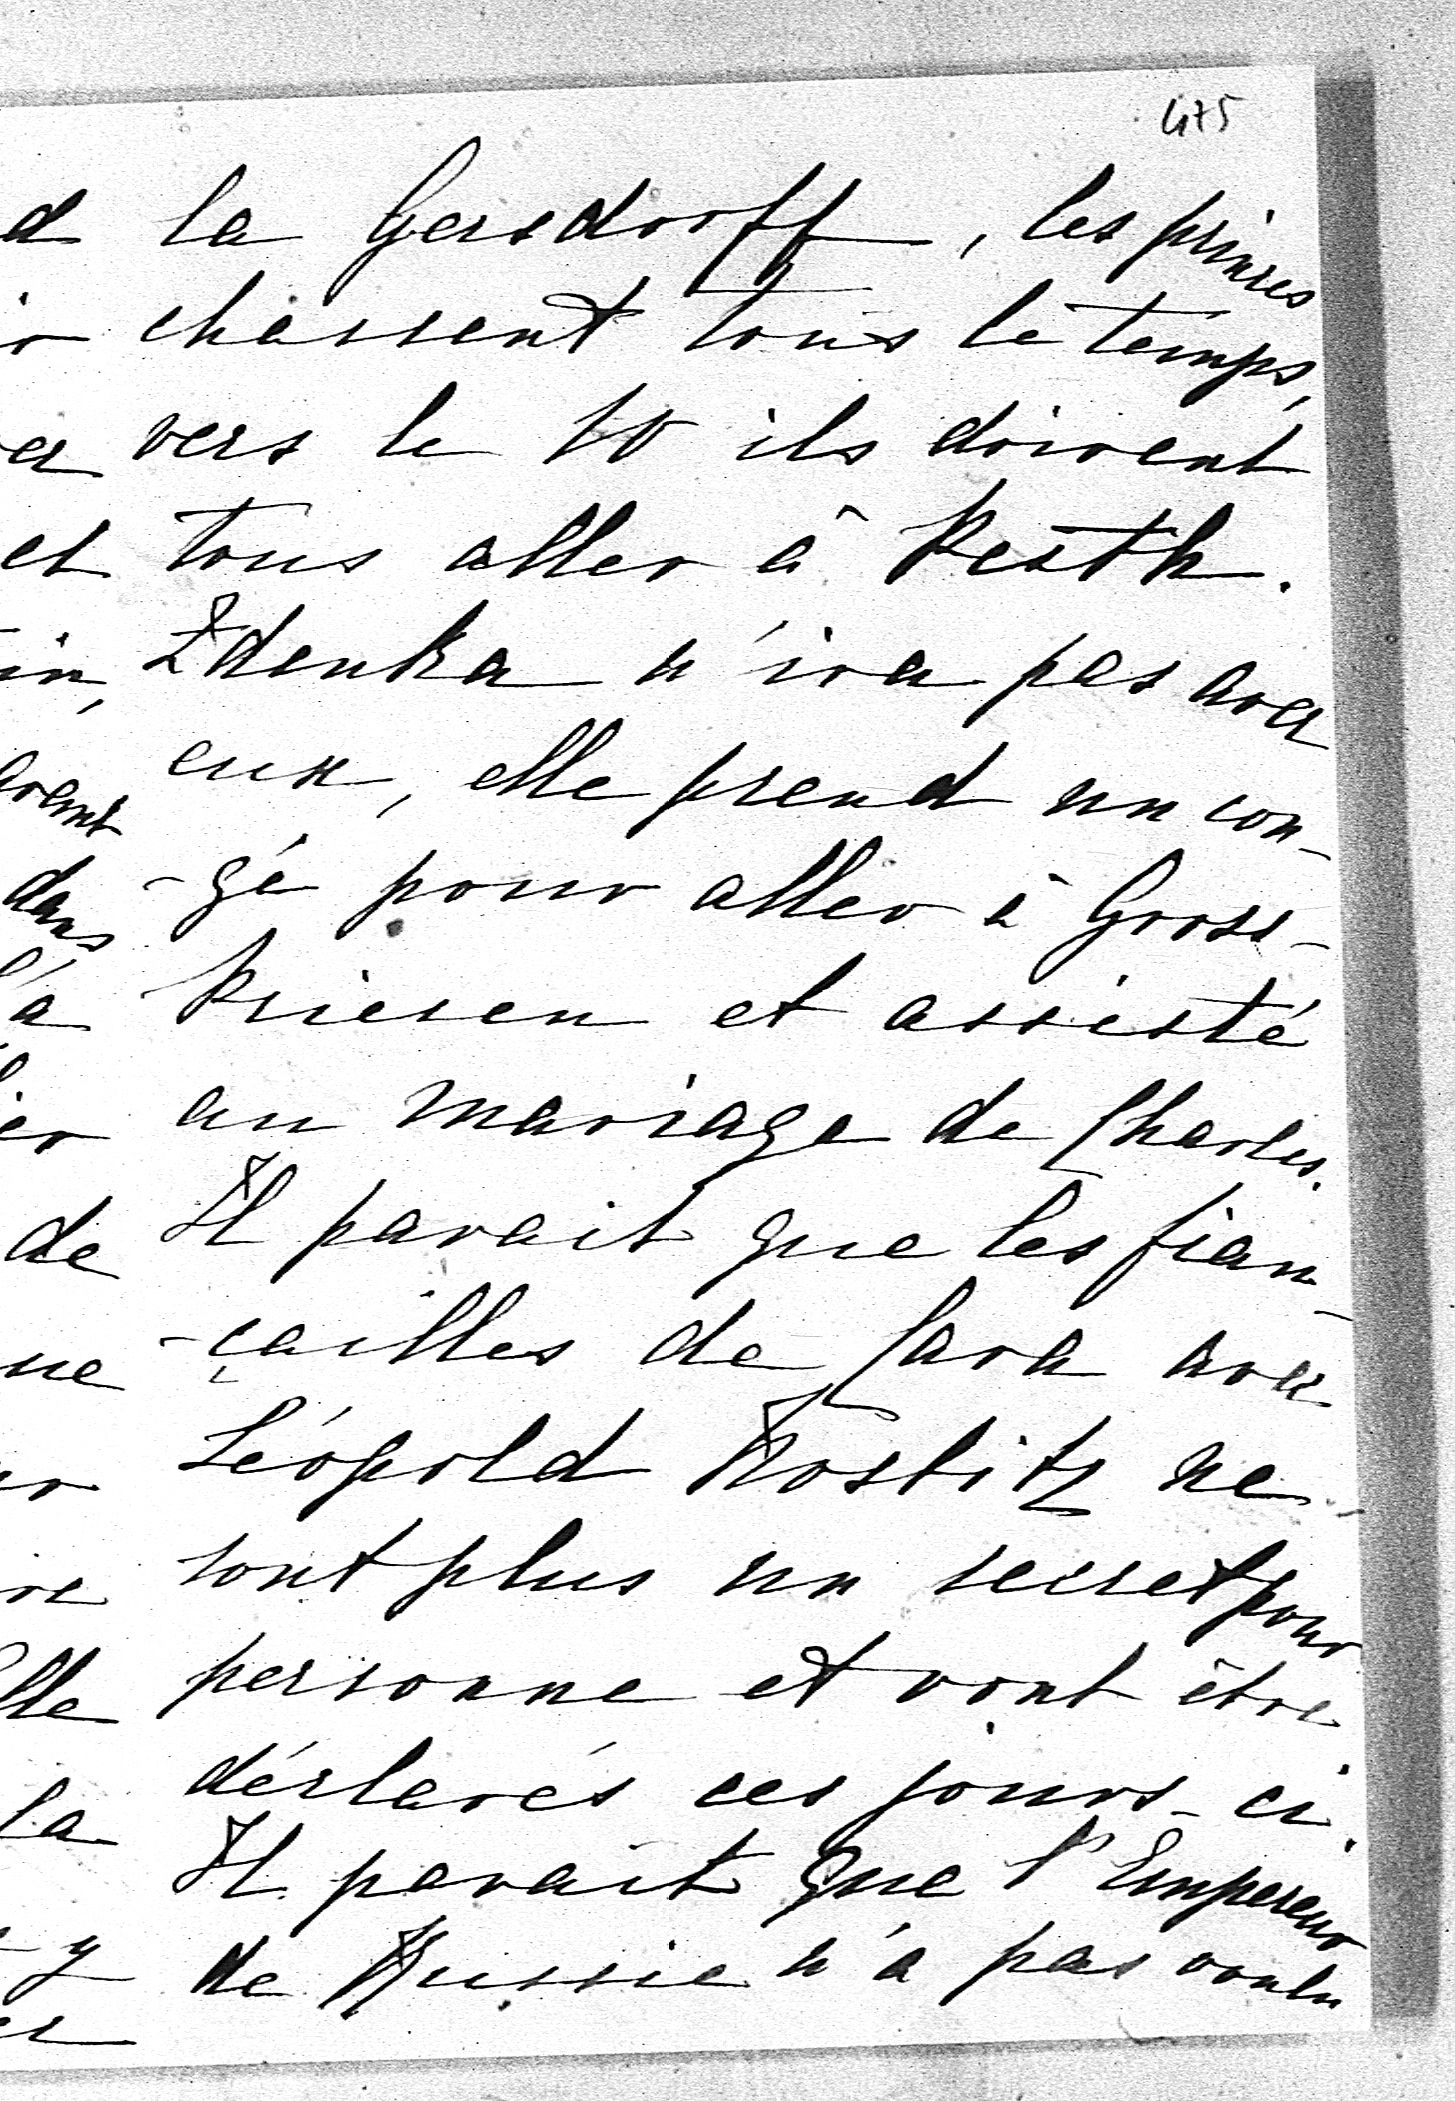 475
la Gersdorff, les princes
chassent tous le temps,
vers le 10 ils doivent
tous aller à Pesth.
Zdenka n'ira pas avec
eux, elle prend un con-
-gé pour aller à Gross-
Priesen et assisté
au mariage de Charles.
Il parait que les fian-
-çailles de Sara avec
Léopold Nostitz ne
sont plus un secret pour
personne et vont être
déclarés ces jours-ci.
Il parait que l'Empereur
de Russie n'a pas voulu